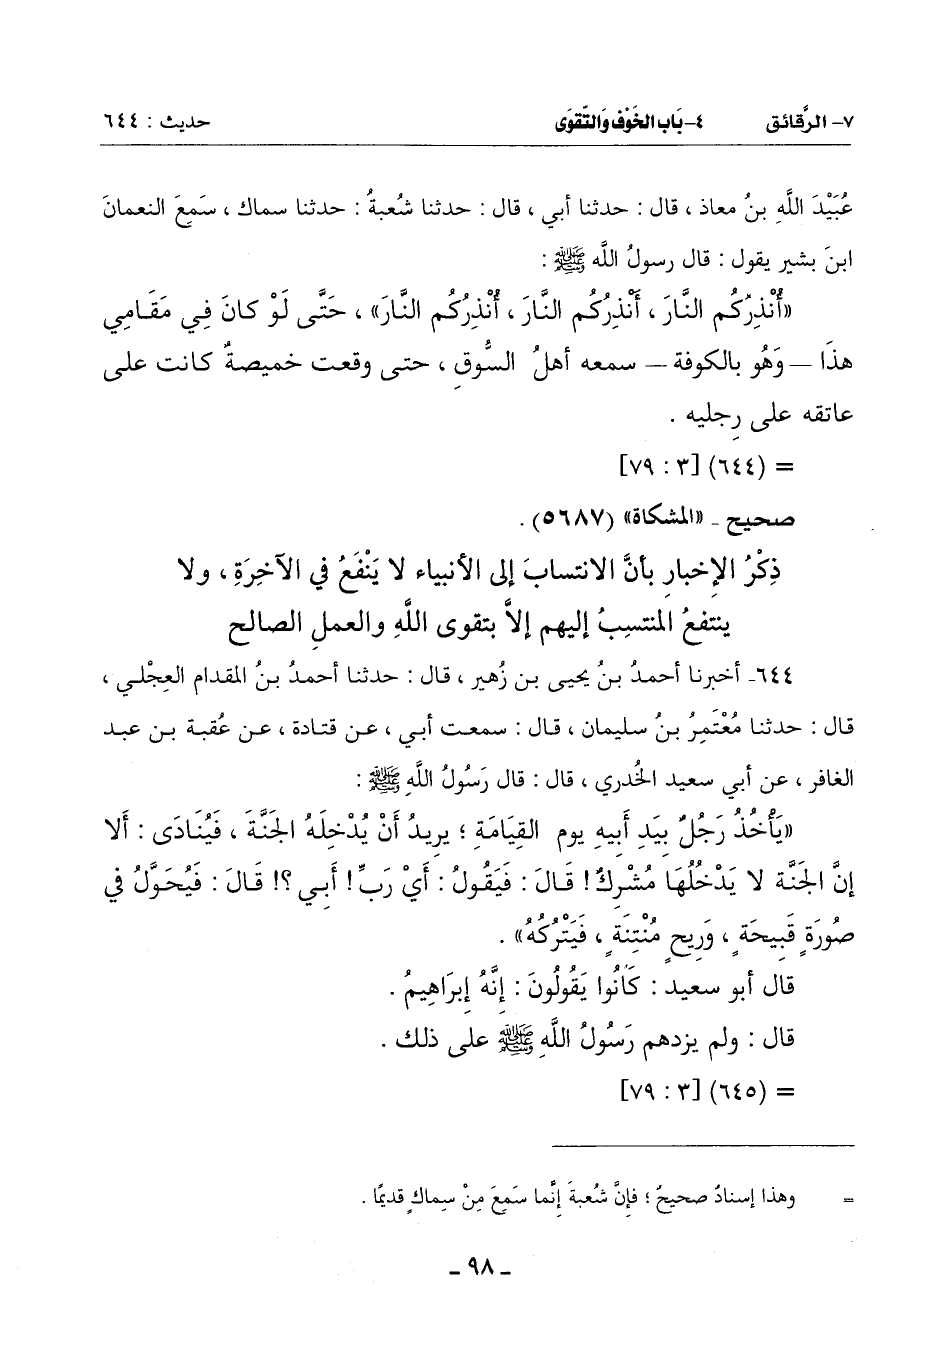 ٧- الرَّقائق ٤- بَاب الخَوْف وَالتَّقوَى حديث : ٦٤٤
عُبَيْدَ اللَّهِ بنُ معاذ ، قال : حدثنا أبي ، قال : حدثنا شُعبةُ : حدثنا سماك ، سمَعَ النعمانَ
ابنَ بشير يقول : قال رسولُ اللَّه ﷺ :
«أُنْذِرُكُم النَّارَ ، أُنْذِرُكُم النَّارَ ، أُنْذِرُكُم النَّارَ» ، حَتَّى لَوْ كانَ فِي مَقَامِي
هذَا — وَهُو بالكوفة — سمعه أهلُ السُّوقِ ، حتى وقعت خميصةٌ كانت على
عاتقه على رِجليه .
= (٦٤٤) [٣ : ٧٩]
صحيح ـ «المشكاة» (٥٦٨٧) .
ذِكْرُ الإخبارِ بأنَّ الانتسابَ إلى الأنبياء لا يَنْفَعُ في الآخِرَةِ ، ولا
ينتفعُ المنتسِبُ إليهم إلاَّ بتقوى اللَّهِ والعملِ الصالح
٦٤٤ـ أخبرنا أحمدُ بنُ يحيى بن زُهير ، قال : حدثنا أحمدُ بنُ المقدام العِجْلي ،
قال : حدثنا مُعْتَمِرُ بنُ سليمان ، قال : سمعت أبي ، عن قتادة ، عن عُقبة بن عبد
الغافر ، عن أبي سعيد الخُدري ، قال : قال رَسُولُ اللَّهِ ﷺ :
«يَأْخُذُ رَجُلٌ بيَدِ أَبيهِ يوم القِيَامَةِ ؛ يريدُ أَنْ يُدْخِلَهُ الجَنَّةَ ، فَيُنَادَى : أَلا
إنَّ الجَنَّة لا يَدْخُلُهَا مُشْرِكٌ ! قَالَ : فَيَقُولُ : أَيْ رَبِّ ! أَبي ؟! قَالَ : فَيُحَوَّلُ في
صُورَةٍ قَبيحَةٍ ، وَرِيحٍ مُنْتِنَةٍ ، فَيَتْرُكُهُ» .
قال أبو سعيد : كَانُوا يَقُولُونَ : إنَّهُ إبرَاهِيمُ .
قال : ولم يزدهم رَسُولُ اللَّهِ ﷺ على ذلك .
= (٦٤٥) [٣ : ٧٩]
= وهذا إسنادٌ صحيحٌ ؛ فإنَّ شُعبةَ إنَّما سَمعَ مِنْ سِماكٍ قديمًا .
ـ ٩٨ ـ